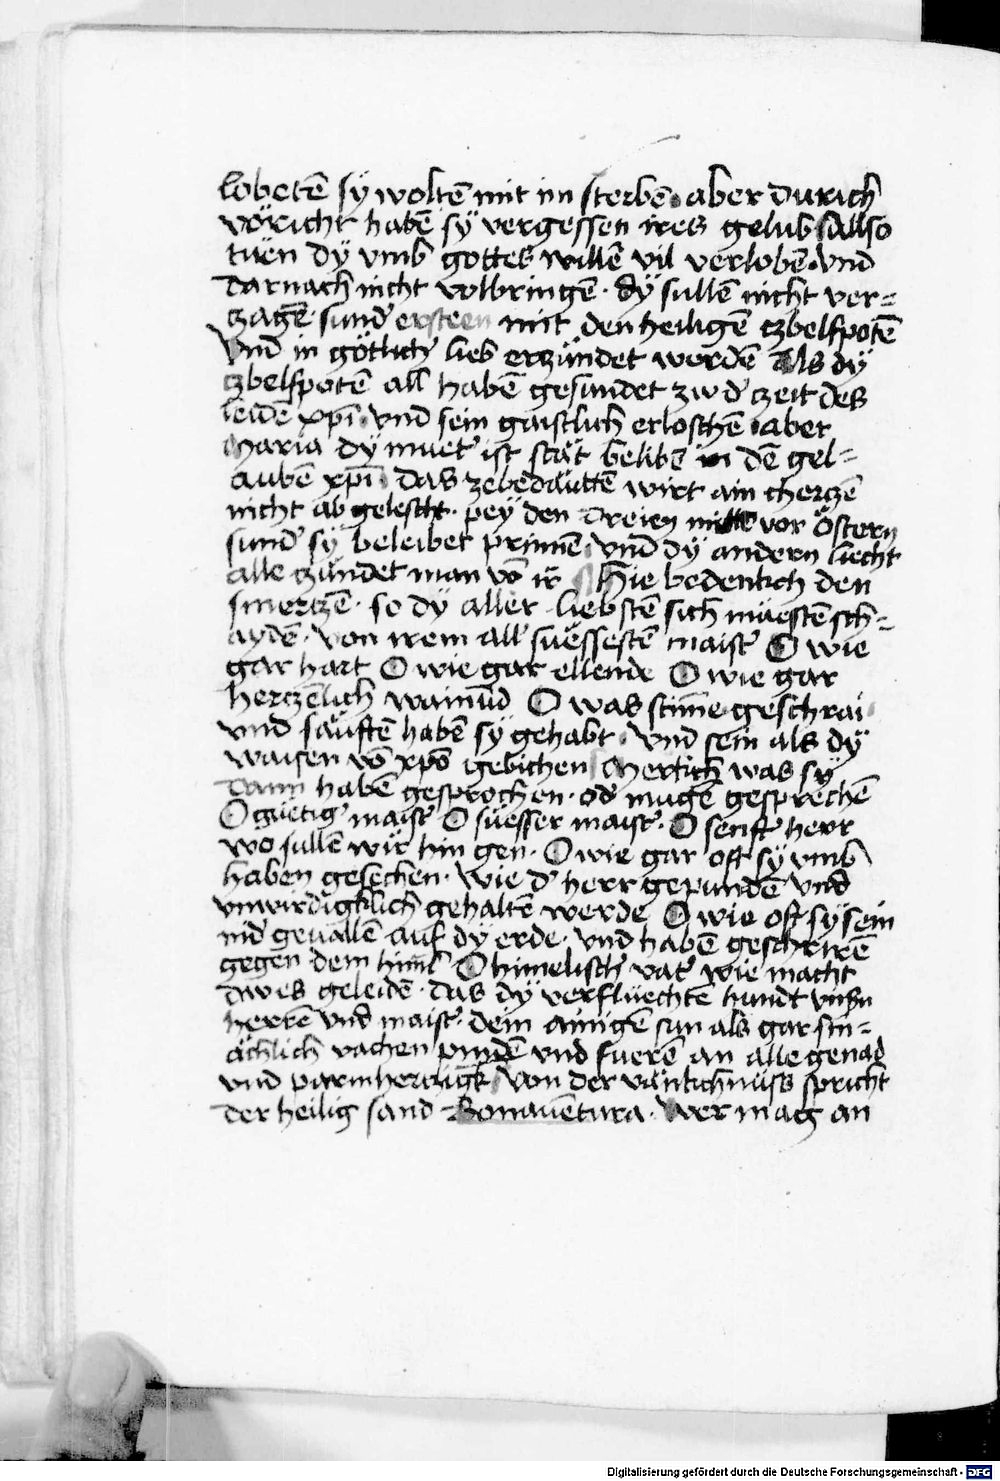 lobetē sÿ woltē mit im sterbē · aber durich
vöricht habē sÿ vergessen ires gelub Allso
tuen dÿ vmb gottes willē vil verlobē · vnd
darnach nicht volbringē · dÿ sullē nicht ver=
czagē · sund' ersteen mit den heiligē czbelfpotē
Vnd in götlich' lieb erczündet werdē Als dÿ
czbelfpotē all habē gesundet zw d' czeit des
leidē xpī · vnd sein gaistlich erloschē · aber
Maria dÿ muet' ist stät belibē in dē gel=
aubē xpī · das zebedäuttē wirt ain cherczē
nicht abgelescht · pey den dreien mitte vor östern
sund' sÿ beleibet prinnē · vnd dÿ andern liecht
alle zündet man vō ir Hie bedentich den
smerczē · so dÿ aller liebstē sich muestē sch=
aydē · von irem all' suessestē maist' O wie
gar hart O wie gar ellende O wie gar
herczēlich wainūd O was stīme geschrai
vnd säuftē habē sÿ gehabt · Vnd sein als dÿ
waisen vō xpō gebichen Merkich was sÿ
dann habē gesprochen · od' mugē gesprechē
O guetig' maist' O süesser maist' · O senft' herr
wo sullē wir hin gen · O wie gar oft sÿ vmb
haben gesechen · wie d' herr gepundē vnd
vnwirdigklich gehaltē werde O wie oft sÿ sein
nid' geuallē auf dÿ erde · vnd habē geschrirē
gegen dem himl O himelisch' vat' wie macht
dw es geleidē · das dÿ verfluechtē hundt vnsn
herrē vnd maist' · dein ainigē sun als gar sm=
ächlich vachen pindē vnd fuerē an alle genad
vnd parmherczigk Von der väncklichnüss spricht
der heilig sand Bonauētura · Wer mag an
Digitalisierung gefördert durch die Deutsche Forschungsgemeinschaft - DFG